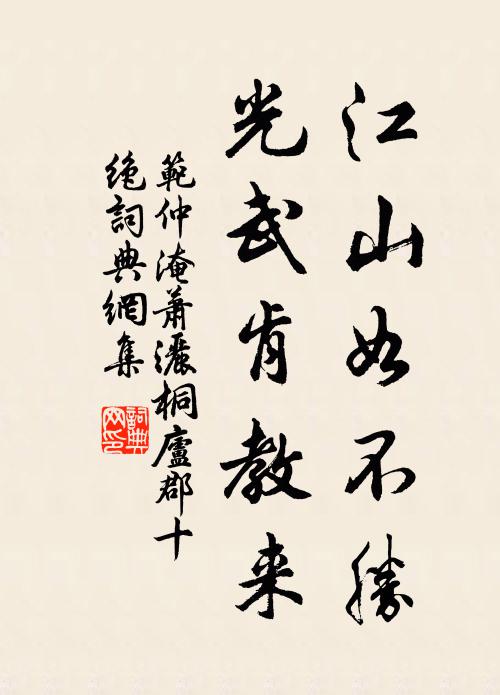 江山如不勝
光武肯教来
範仲淹蕭灑桐廬郡十
絶詞典網集
詞典
网印